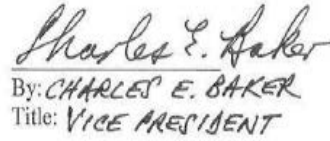 Charles E. Baker
By: CHARLES E. BAKER
Title: VICE PRESIDENT